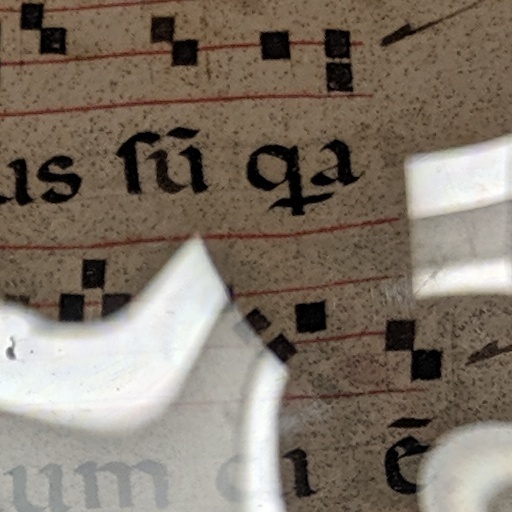 us sū qa
um ē